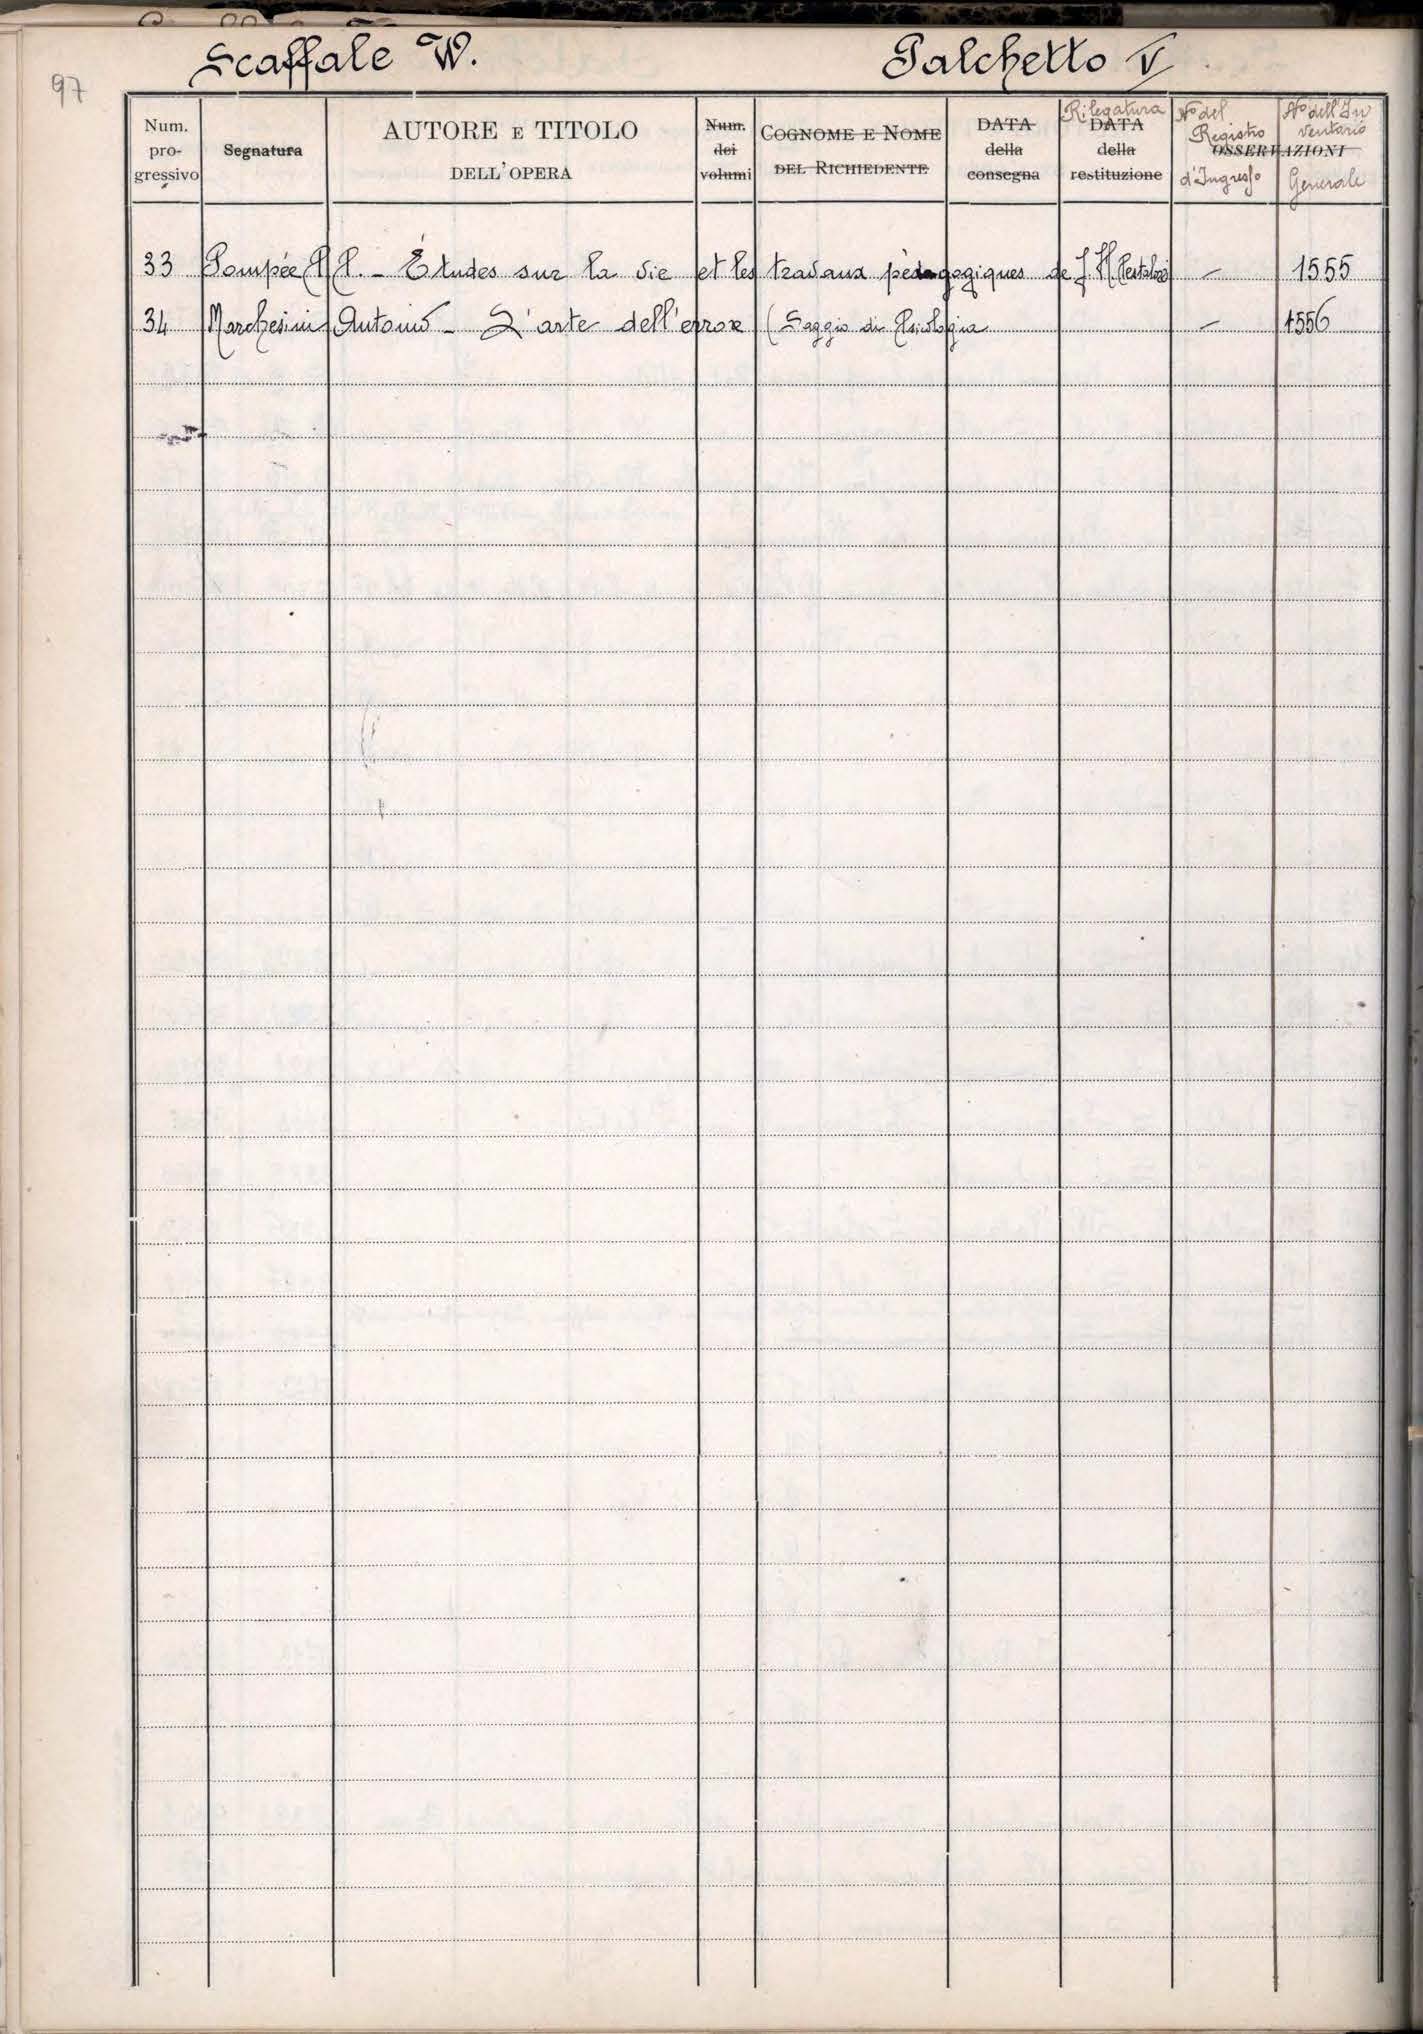 Scaffale W. Palchetto V
97
Num. progressivo Segnatura AUTORE E TITOLO DELL'OPERA Num. dei volumi COGNOME E NOME DEL RICHIEDENTE DATA della consegna Rilegatura DATA della restituzione OSSERVAZIONI N° del Registro d'Ingresso N° dell'Inventario Generale
33 Pompée P. P. - Études sur la vie et les travaux pèdagogiques de J. H. Pestalozzi - 1555
34 Marchesini Antonio - L'arte dell'error (Saggio di Psicologia - 1556